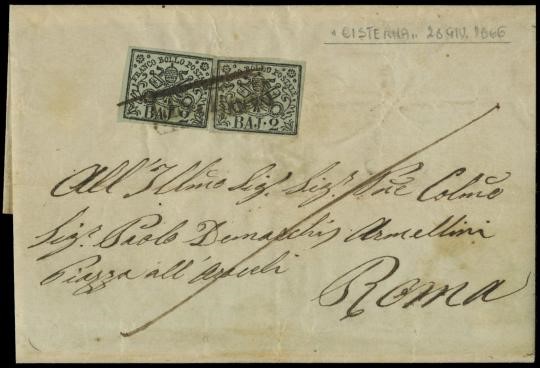 "CISTERNA" 28 GIU. 1866
FRANCO BOLLO POSTALE
BAJ. 2
FRANCO BOLLO POSTALE
BAJ. 2
All' Illmo Sig. Sig.r Pne Colmo
Sig.r Paolo Demarchis Armellini
Piazza all' Aracoeli
Roma